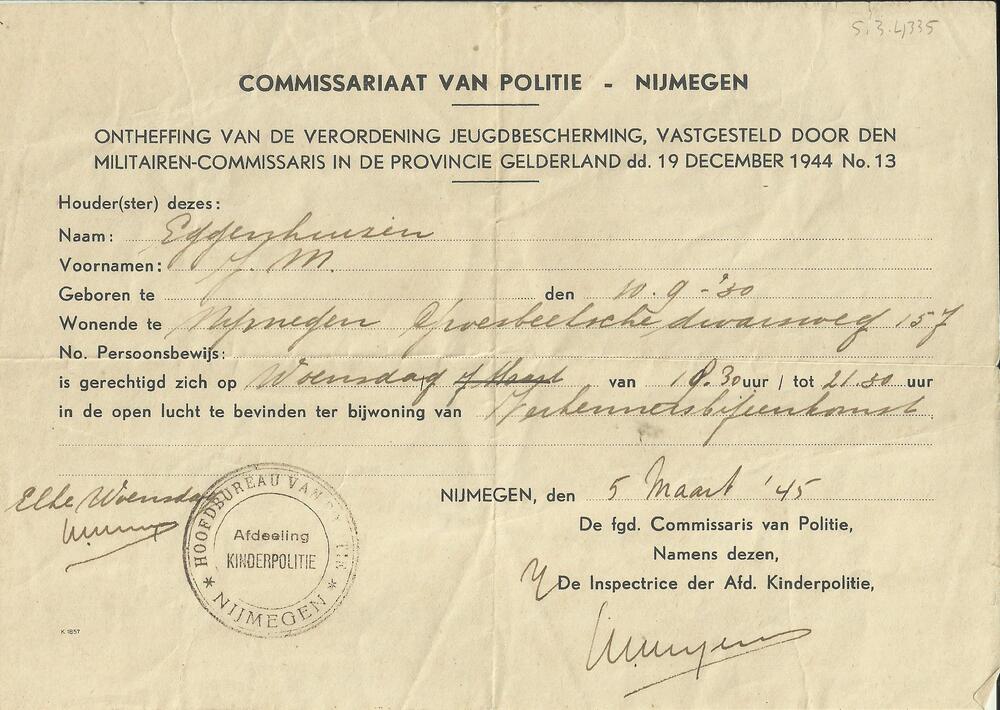 5.3.4335
COMMISSARIAAT VAN POLITIE - NIJMEGEN
ONTHEFFING VAN DE VERORDENING JEUGDBESCHERMING, VASTGESTELD DOOR DEN
MILITAIREN-COMMISSARIS IN DE PROVINCIE GELDERLAND dd. 19 DECEMBER 1944 No. 13
Houder(ster) dezes:
Naam: Eggenhuisen
Voornamen: J. M.
Geboren te den 10.9-'30
Wonende te Nijmegen Groesbeeksche dwarsweg 157
No. Persoonsbewijs:
is gerechtigd zich op Woensdag 7 Maart van 18.30 uur / tot 21.30 uur
in de open lucht te bevinden ter bijwoning van Verkennersbijeenkomst
Elke Woensdag
NIJMEGEN, den 5 Maart '45
De fgd. Commissaris van Politie,
Namens dezen,
De Inspectrice der Afd. Kinderpolitie,
HOOFDBUREAU VAN POLITIE
Afdeeling
KINDERPOLITIE
* NIJMEGEN *
K 1857